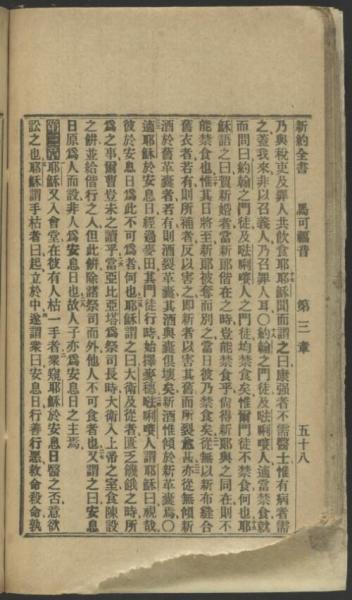 新約全書　馬可福音　第三章　五十八
乃與稅吏及罪人共飲食耶耶穌聞而謂之曰康强者不需醫士惟有病者需
之蓋我來非以召義人乃召罪人耳〇約翰之門徒及𠵽唎㘔人適當禁食就
而問曰約翰之門徒及𠵽唎㘔人之門徒均禁食矣惟爾門徒不禁食何也耶
穌語之曰賀新婚者當新郎偕在之時豈能禁食乎偕得新郎與之同在則不
能禁食也惟其日將至新郎被奪而別之當日彼乃禁食矣從無以新布縫合
舊衣者若有則所補者反以害之即新者以害其舊而所裂愈甚亦從無傾新
酒於舊革囊者若有則酒裂革囊其酒與囊俱壞矣新酒惟傾於新革囊焉〇
適耶穌於安息日經過麥田其門徒行時始擇麥穗𠵽唎㘔人謂耶穌曰視哉
彼於安息日爲此不可爲者何也耶穌謂之曰大衛及從者匱乏饑餓之時所
爲之事爾曹豈未之讀乎當亞比亞塔爲祭司長時大衛入上帝之室食陳設
之餅並給偕行之人但此餅除諸祭司而外他人不可食者也又謂之曰安息
日原爲人而設非人爲安息日也故人子亦爲安息日之主焉
第三章　耶穌又入會堂在彼有人枯一手者衆窺耶穌於安息日醫之否意欲
訟之也耶穌謂手枯者曰起立於中遂謂衆曰安息日行善行惡救命殺命孰